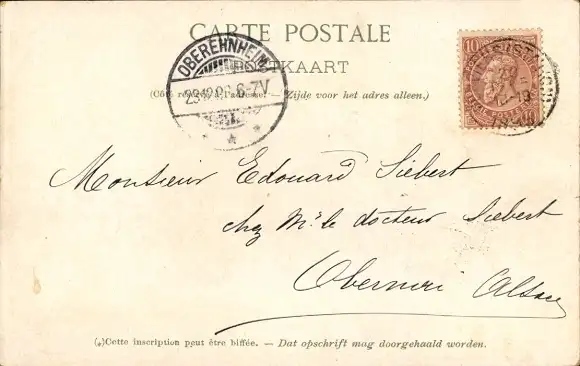 CARTE POSTALE
POSTKAART
(Côté réservé à l'adresse. — Zijde voor het adres alleen.)
OBEREHNHEIM
6-7V
10
Monsieur Edouard Siebert
chez Mr le docteur Siebert
Obernai Alsace
(*) Cette inscription peut être biffée. — Dat opschrift mag doorgehaald worden.